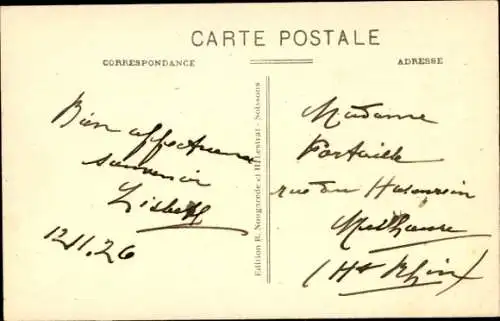 CARTE POSTALE
CORRESPONDANCE
ADRESSE
Bien affectueux
souvenir
Lisbeth
12.11.26
Edition R. Nougarede et H. Lestrat - Soissons
Madame
rue du Hasenrain
Mulhouse
(Ht Rhin)